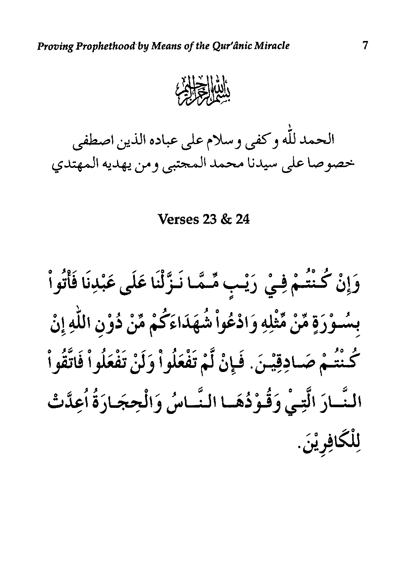 Proving Prophethood by Means of the Qur'ânic Miracle 7
بسم الله الرحمن الرحيم
الحمد لله وكفى وسلام على عباده الذين اصطفى
خصوصا على سيدنا محمد المجتبى ومن يهديه المهتدي
Verses 23 & 24
وَإِنْ كُنْتُمْ فِيْ رَيْبٍ مِّمَّا نَزَّلْنَا عَلَى عَبْدِنَا فَأْتُواْ
بِسُوْرَةٍ مِّنْ مِّثْلِهِ وَادْعُواْ شُهَدَاءَكُمْ مِّنْ دُوْنِ اللهِ إِنْ
كُنْتُمْ صَادِقِيْنَ. فَإِنْ لَّمْ تَفْعَلُواْ وَلَنْ تَفْعَلُواْ فَاتَّقُواْ
النَّارَ الَّتِيْ وَقُوْدُهَا النَّاسُ وَالْحِجَارَةُ أُعِدَّتْ
لِلْكَافِرِيْنَ.